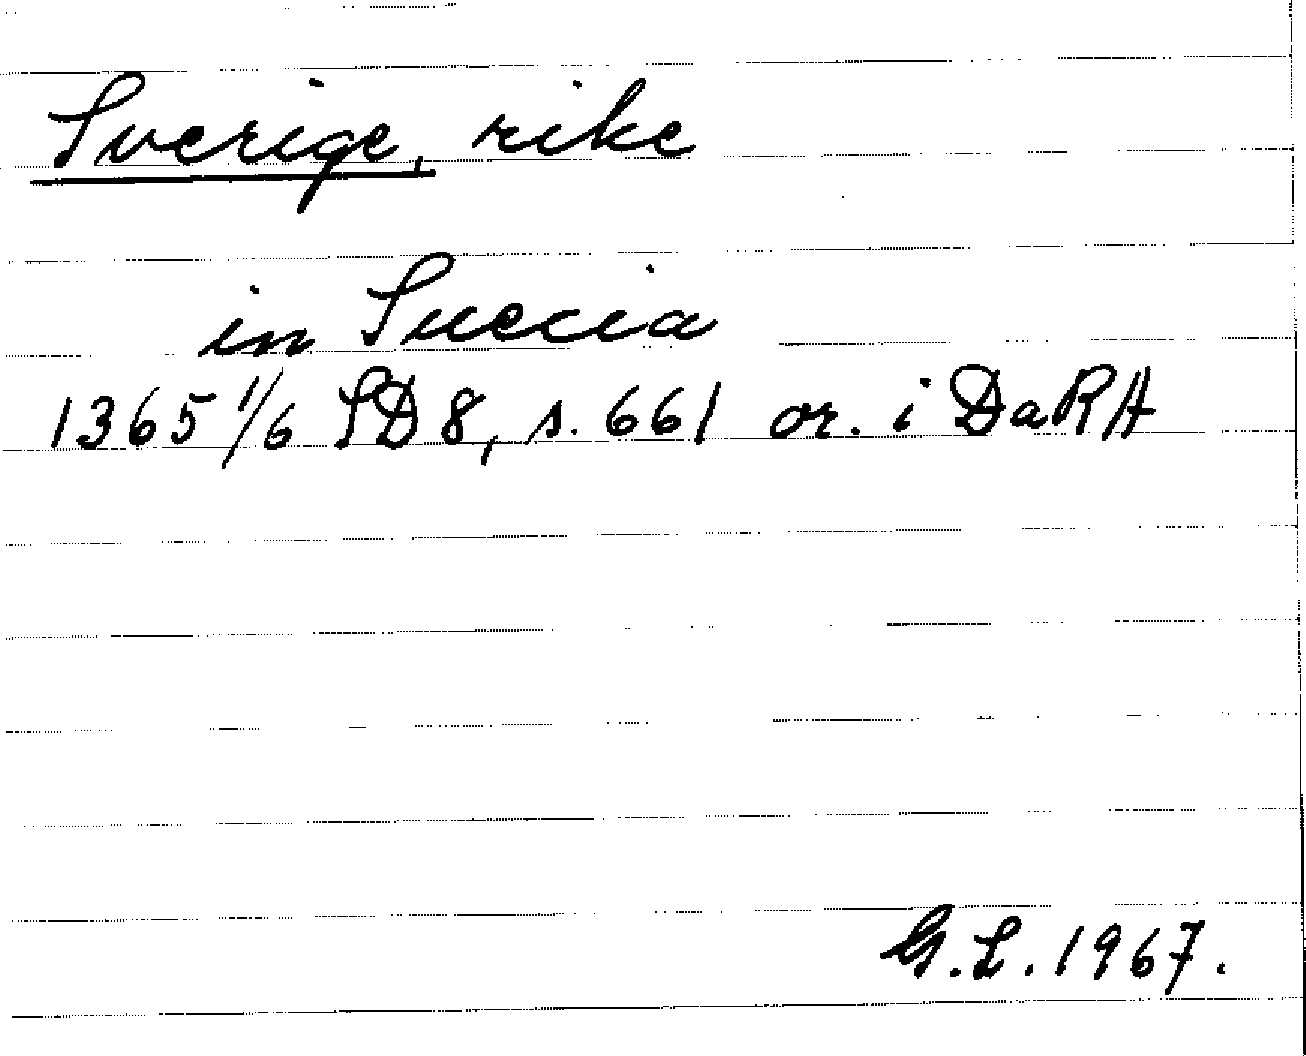 Sverige, rike
in Suecia
1365 1/6 SD 8, s. 661 or. i DaRA
G.L. 1967.